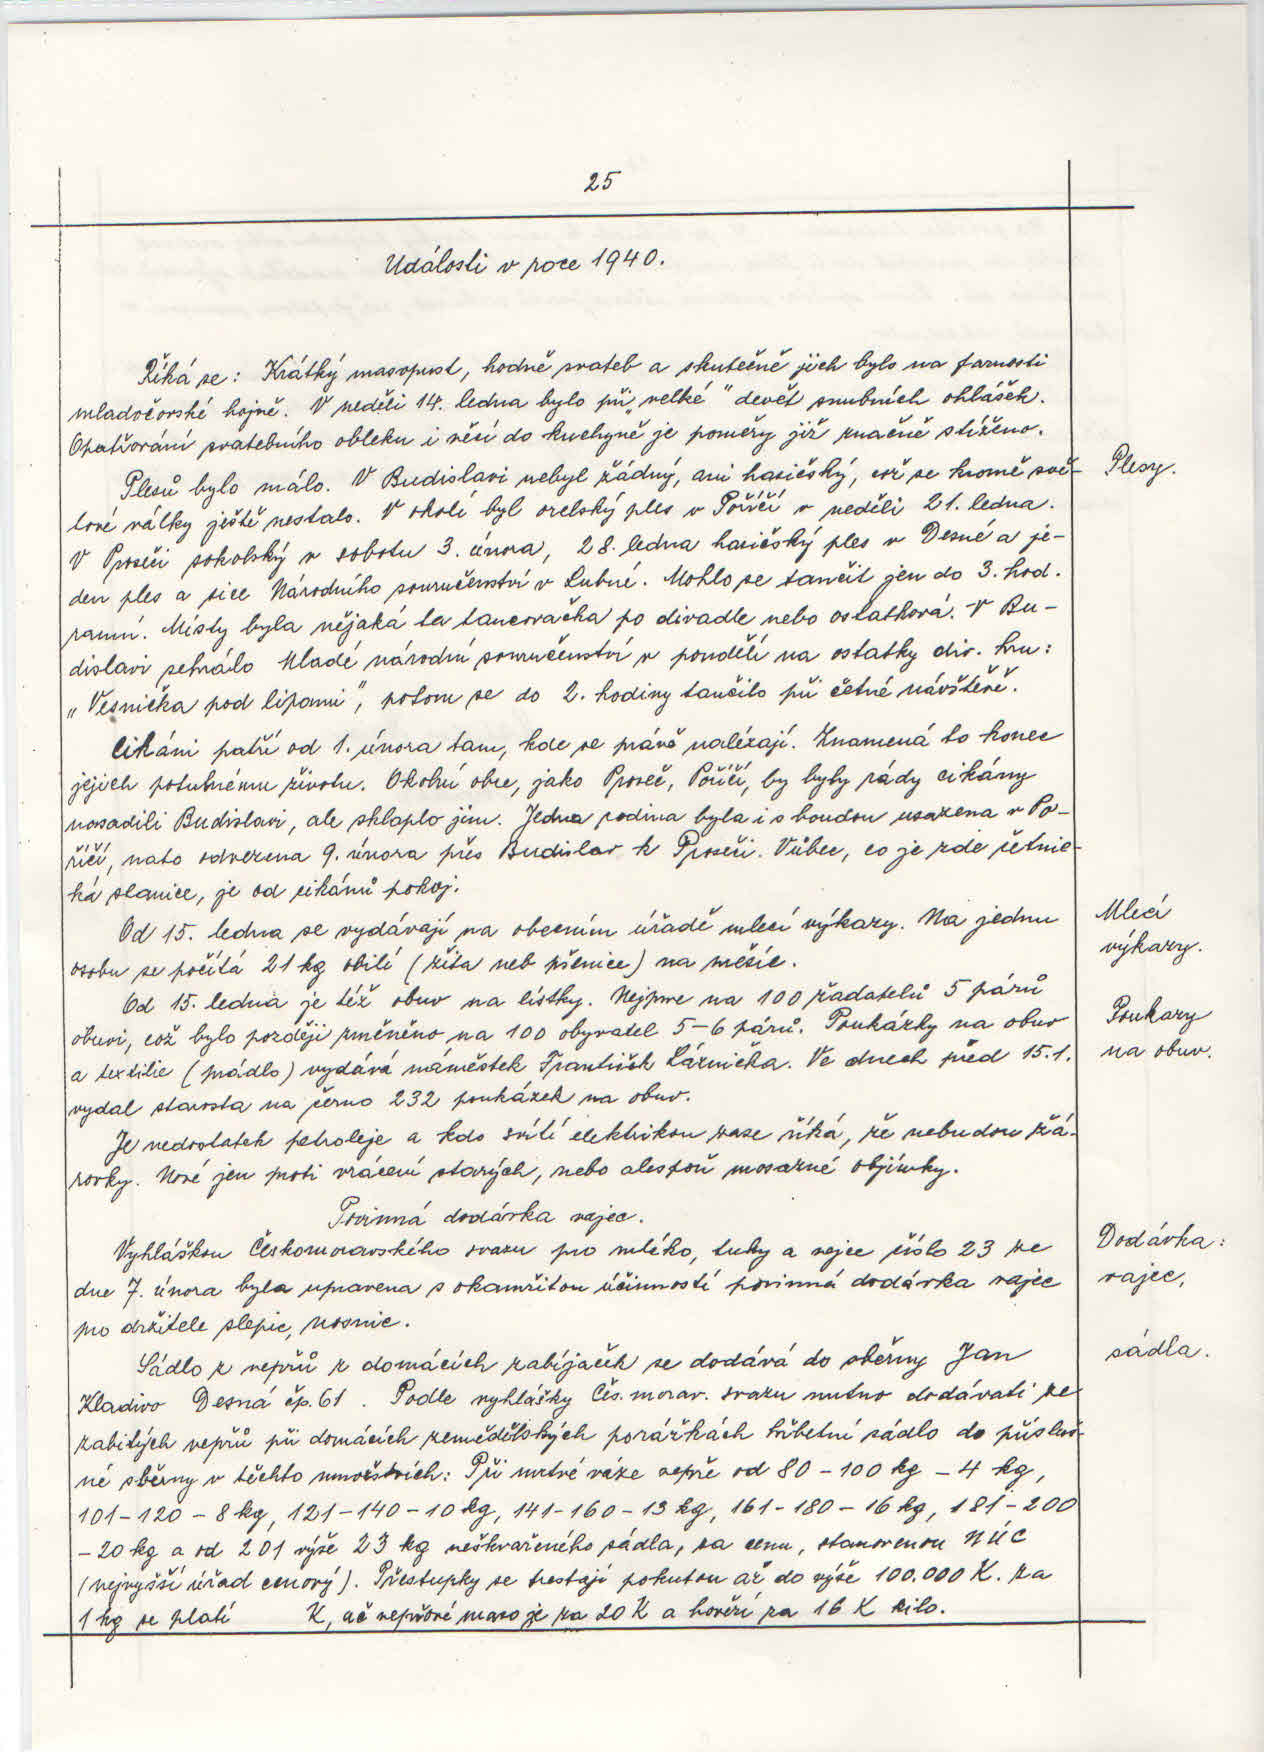 25
Události v roce 1940.
Říká se: Krátký masopust, hodně svateb a skutečně jich bylo na farnosti
mladočovské hojně. V neděli 14. ledna bylo při „velké" devět snubních ohlášek.
Opatřování svatebního obleku i věcí do kuchyně je poměry již značně stíženo.
Plesů bylo málo. V Budislavi nebyl žádný, ani hasičský, což se kromě svě-
Plesy.
tové války ještě nestalo. V okolí byl orelský ples v Poříčí v neděli 21. ledna.
V Proseči sokolský v sobotu 3. února, 28. ledna hasičský ples v Desné a je-
den ples a sice Národního souručenství v Lubné. Mohlo se tančit jen do 3. hod.
ranní. Místy byla nějaká ta tancovačka po divadle nebo ostatková. V Bu-
dislavi sehrálo Mladé národní souručenství v pondělí na ostatky div. hru:
„Vesnička pod lipami", potom se do 2. hodiny tančilo při četné návštěvě.
Cikáni patří od 1. února tam, kde se právě nalézají. Znamená to konec
jejich potulnému životu. Okolní obce, jako Proseč, Poříčí, by byly rády cikány
nasadili Budislavi, ale sklaplo jim. Jedna rodina byla i s boudou usazena v Po-
říčí, nato odvezena 9. února přes Budislav k Proseči. Vůbec, co je zde četnic-
ká stanice, je od cikánů pokoj.
Od 15. ledna se vydávají na obecním úřadě mlecí výkazy. Na jednu
Mlecí
výkazy.
osobu se počítá 21 kg obilí (žita neb pšenice) na měsíc.
Od 15. ledna je též obuv na lístky. Nejprve na 100 žadatelů 5 párů
Poukazy
na obuv.
obuvi, což bylo později změněno na 100 obyvatel 5-6 párů. Poukázky na obuv
a textilie (prádlo) vydává náměstek František Láznička. Ve dnech před 15.1.
vydal starosta na černo 232 poukázek na obuv.
Je nedostatek petroleje a kdo svítí elektrikou zase říká, že nebudou žá-
rovky. Nové jen proti vrácení starých, nebo alespoň mosazné objímky.
Povinná dodávka vajec.
Vyhláškou Českomoravského svazu pro mléko, tuky a vejce číslo 23 ze
Dodávka:
vajec,
dne 7. února byla upravena s okamžitou účinností povinná dodávka vajec
pro držitele slepic, nosnic.
Sádlo z vepřů z domácích zabíjaček se dodává do sběrny Jan
sádla.
Kladivo Desná čp. 61. Podle vyhlášky Čes. morav. svazu nutno dodávati ze
zabitých vepřů při domácích zemědělských porážkách hřbetní sádlo do přísluš-
né sběrny v těchto množstvích: Při mrtvé váze vepře od 80 - 100 kg - 4 kg,
101 - 120 - 8 kg, 121 - 140 - 10 kg, 141 - 160 - 13 kg, 161 - 180 - 16 kg, 181 - 200
- 20 kg a od 201 výše 23 kg neškvařeného sádla, za cenu, stanovenou NÚC
(nejvyšší úřad cenový). Přestupky se trestají pokutou až do výše 100.000 K. Za
1 kg se platí K, ač vepřové maso je za 20 K a hovězí za 16 K kilo.